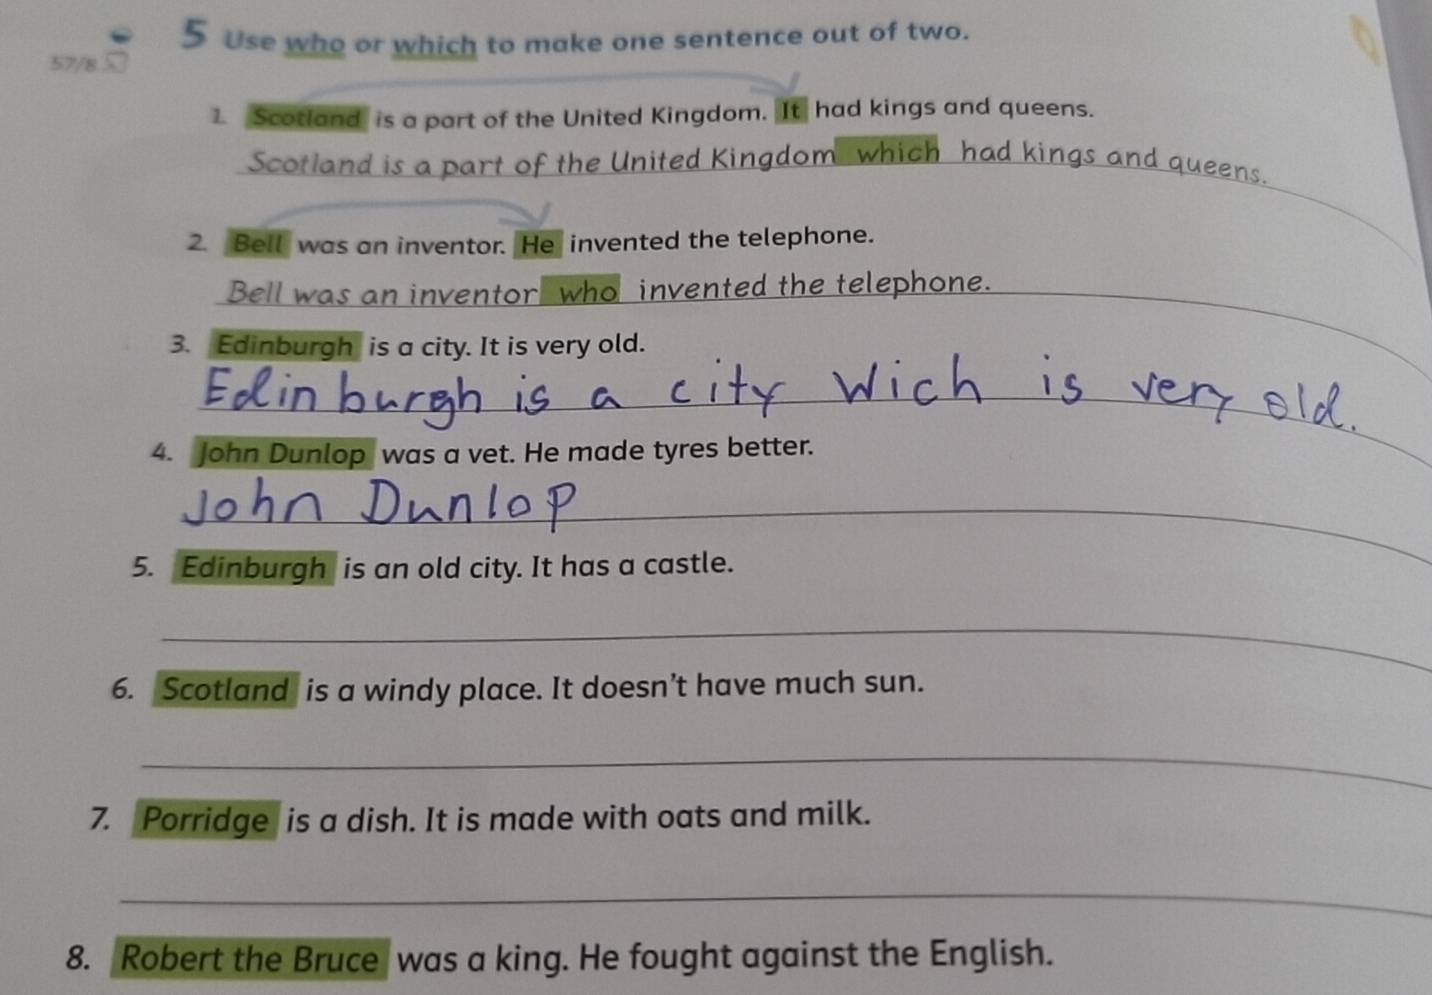 5 Use who or which to make one sentence out of two.
57/8
1. Scotland is a part of the United Kingdom. It had kings and queens.
Scotland is a part of the United Kingdom which had kings and queens.
2. Bell was an inventor. He invented the telephone.
Bell was an inventor who invented the telephone.
3. Edinburgh is a city. It is very old.
Edinburgh is a city Wich is very old.
4. John Dunlop was a vet. He made tyres better.
John Dunlop
5. Edinburgh is an old city. It has a castle.
6. Scotland is a windy place. It doesn't have much sun.
7. Porridge is a dish. It is made with oats and milk.
8. Robert the Bruce was a king. He fought against the English.